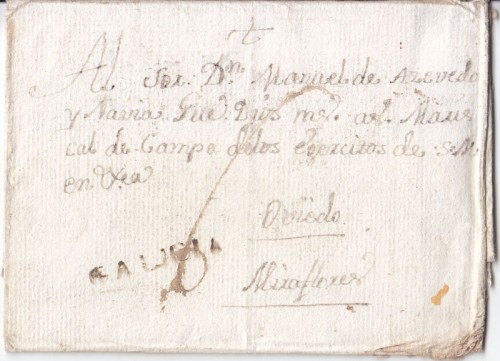 Al Sor. Dn. Manuel de Azevedo
y Navia Gue. Dios ms. as. Maris
cal de Campo delos exercitos de S.M.
en
Oviedo
GALICIA
Miraflores